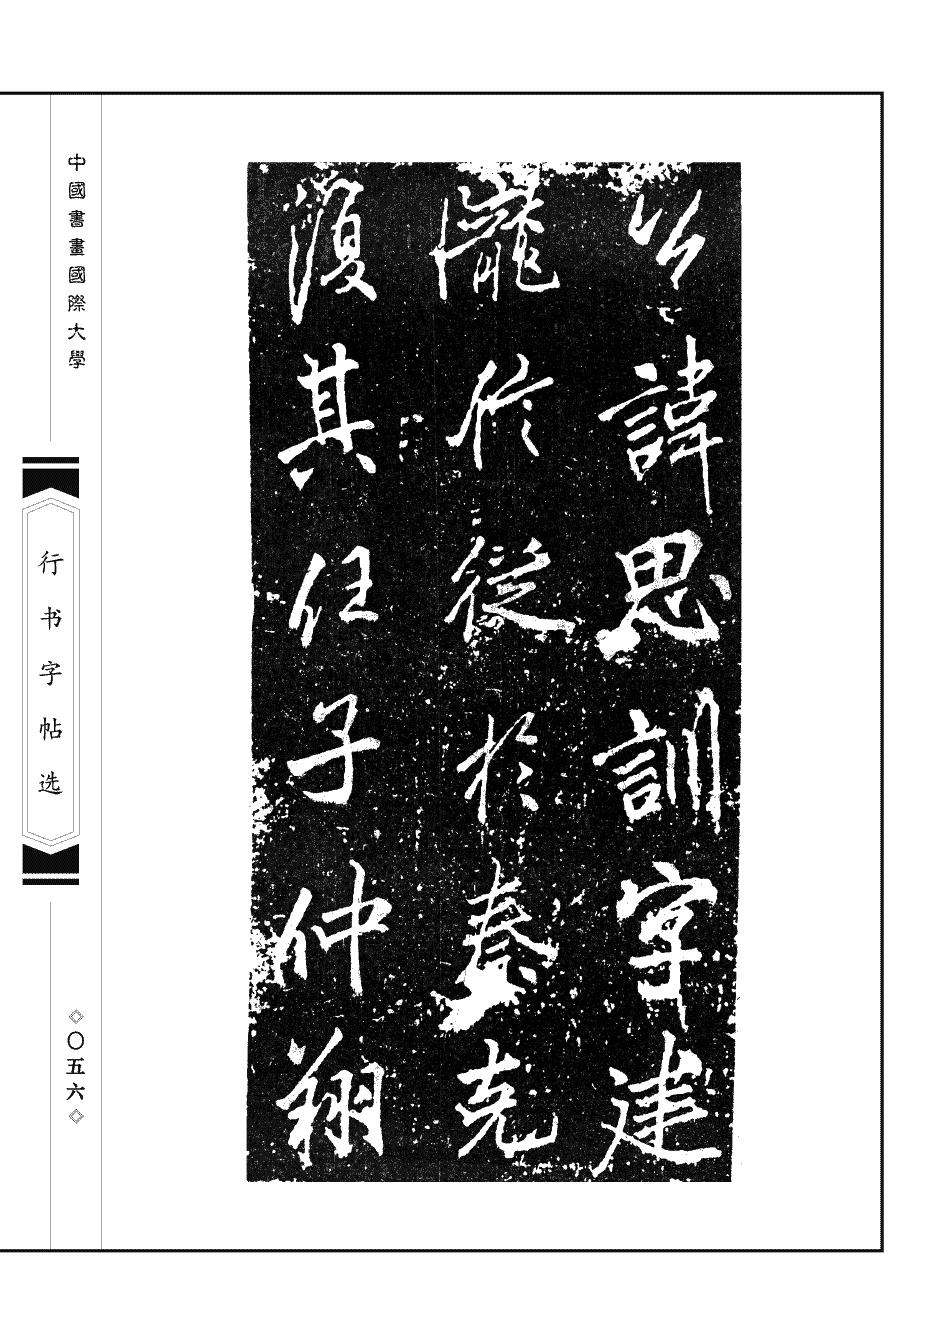 公諱思訓字建
隴信從於秦克
復其任子仲翔
中國書畫國際大學
行书字帖选
〇五六